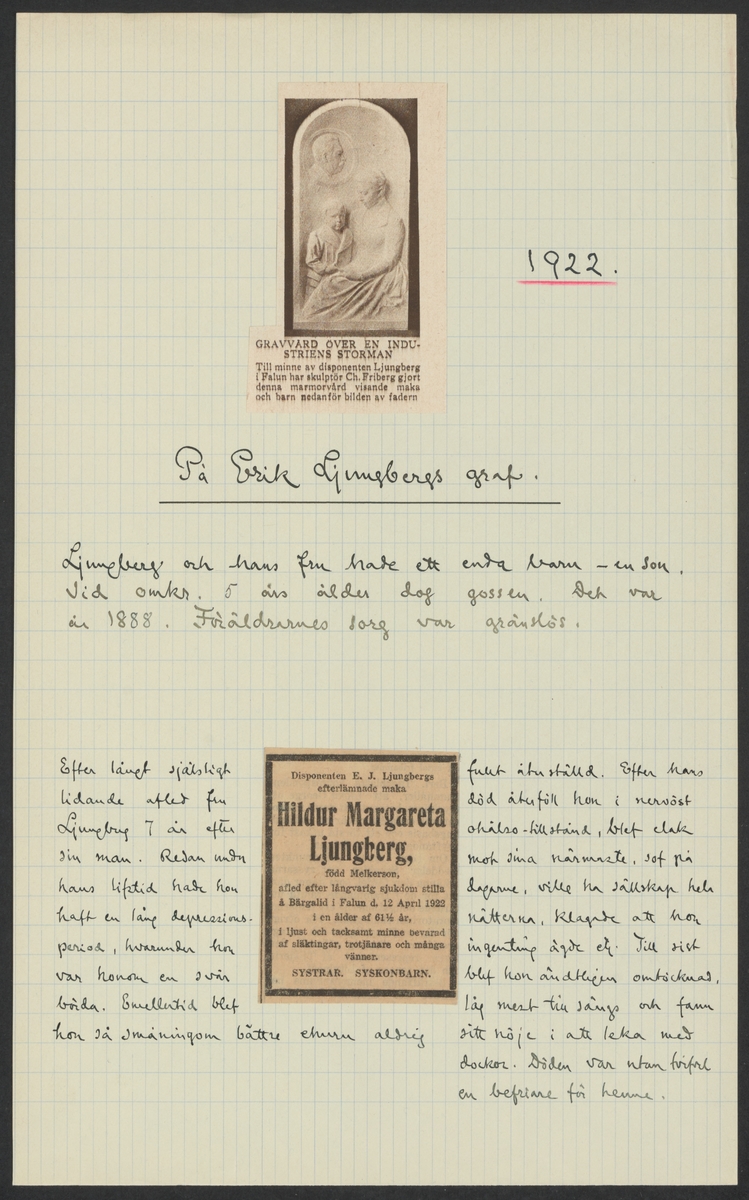 1922.
GRAVVÅRD ÖVER EN INDU-
STRIENS STORMAN
Till minne av disponenten Ljungberg
i Falun har skulptör Ch. Friberg gjort
denna marmorvård visande maka
och barn nedanför bilden av fadern
På Erik Ljungbergs graf.
Ljungberg och hans fru hade ett enda barn – en son.
Vid omkr. 5 års ålder dog gossen. Det var
år 1888. Föräldrarnes sorg var gränslös.
Efter långt själsligt
lidande afled fru
Ljungberg 7 år efter
sin man. Redan under
hans lifstid hade hon
haft en lång depressions-
period, hvarunder hon
var honom en svår
börda. Emellertid blef
hon så småningom bättre ehuru aldrig
Disponenten E. J. Ljungbergs
efterlämnade maka
Hildur Margareta
Ljungberg,
född Melkerson,
afled efter långvarig sjukdom stilla
å Bärgalid i Falun d. 12 April 1922
i en ålder af 61½ år,
i ljust och tacksamt minne bevarad
af släktingar, trotjänare och många
vänner.
SYSTRAR. SYSKONBARN.
fullt återställd. Efter hans
död återföll hon i nervöst
ohälso-tillstånd, blef elak
mot sina närmaste, sof på
dagarne, ville ha sällskap hela
nätterna, klagade att hon
ingenting ägde etc. Till sist
blef hon ändtligen omtöcknad,
låg mest till sängs och fann
sitt nöje i att leka med
dockor. Döden var utan tvifvel
en befriare för henne.